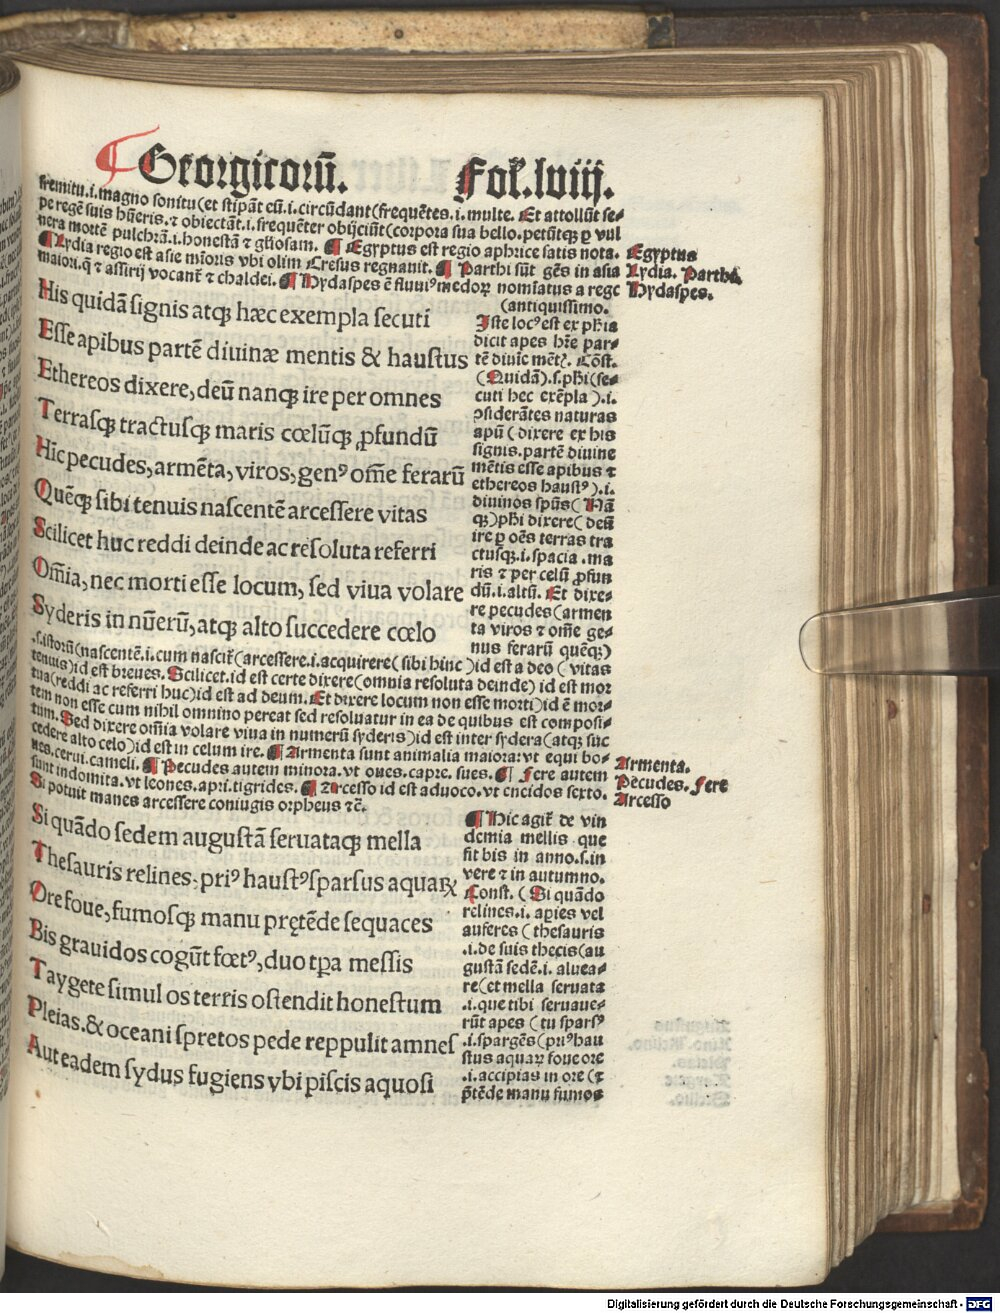 Georgicorū. Fol. lviij.
fremitu.i.magno sonitu(et stipāt eū.i.circūdant(frequētes.i.multe. Et attollūt se⸗
pe regē suis hūeris.⁊ obiectāt.i.frequēter obijciūt(corpora sua bello.petūtqꝫ ꝑ vul
nera mortē pulchrā.i.honestā ⁊ gl̄iosam. ¶ Egyptus est regio aphrice satis nota.
Egyptus
¶ Lydia regio est asie mīoris vbi olim Cresus regnauit. ¶ Parthi sūt gēs in asia
Lydia. Parthi.
maiori.q̄ ⁊ assirij vocant᷑ ⁊ chaldei. ¶ Hydaspes ē fluuiꝰ medoꝝ nomīatus a rege
Hydaspes.
(antiquissimo.
His quidā signis atqꝫ hæc exempla secuti
Esse apibus partē diuinæ mentis & haustus
Ethereos dixere, deū nanqꝫ ire per omnes
Terrasqꝫ tractusqꝫ maris cœlūqꝫ ꝓfundū
Hic pecudes, armēta, viros, genꝰ om̄e ferarū
Quēqꝫ sibi tenuis nascentē arcessere vitas
Scilicet huc reddi deinde ac resoluta referri
Om̄ia, nec morti esse locum, sed viua volare
Syderis in nūerū, atqꝫ alto succedere cœlo
Iste locꝰ est ex ph̄ia
dicit apes hr̄e par⸗
tē diuīe mētꝭ. Cōst.
(Quidā).s.ph̄i(se⸗
cuti hec exēpla).i.
ꝯsiderātes naturas
apū(dixere ex his
signis.partē diuine
mētis esse apibus ⁊
ethereos haustꝰ).i.
diuinos spūs(Nā
qꝫ)ph̄i dixere(deū
ire ꝑ oēs terras tra
ctusqꝫ.i.spacia.ma
ris ⁊ per celū ꝓfun
dū.i.altū. Et dixe⸗
re pecudes(armen
ta viros ⁊ om̄e ge⸗
nus ferarū quēqꝫ)
.s.istorū(nascentē.i.cum nascit᷑(arcessere.i.acquirere(sibi hinc)id est a deo(vitas
tenuis)id est breues. Scilicet.id est certe dixere(omnia resoluta deinde) id est mor
tua(reddi ac referri huc)id est ad deum. Et dixere locum non esse morti)id ē mor⸗
tem non esse cum nihil omnino pereat sed resoluatur in ea de quibus est composi⸗
tum. Sed dixere om̄ia volare viua in numerū syderis)id est inter sydera(atqꝫ suc
cedere alto celo)id est in celum ire. ¶ Armenta sunt animalia maiora:vt equi bo⸗
Armenta.
ues.cerui.cameli. ¶ Pecudes autem minora.vt oues.capre.sues. ¶ Fere autem
Pecudes. Fere
sunt indomita.vt leones.apri.tigrides. ¶ Arcesso id est aduoco.vt eneidos sexto.
Arcesso
Si potuit manes arcessere coniugis orpheus ⁊ē.
Si quādo sedem augustā seruataqꝫ mella
Thesauris relines: priꝰ haustꝰ sparsus aquaꝝ
Ore foue, fumosqꝫ manu prętēde sequaces
Bis grauidos cogūt fœtꝰ, duo tꝑa messis
Taygete simul os terris ostendit honestum
Pleias. & oceani spretos pede reppulit amnes
Aut eadem sydus fugiens vbi piscis aquosi
¶ Hic agit᷑ de vin
demia mellis que
fit bis in anno.s.in
vere ⁊ in autumno.
Const. (Si quādo
relines.i. apies vel
auferes(thesauris
.i.de suis thecis(au
gustā sedē.i. aluea⸗
re(et mella seruata
.i.que tibi seruaue⸗
rūt apes (tu sparsꝰ
.i.spargēs(priꝰ hau
stus aquaꝝ foue ore
.i.accipias in ore(⁊
p̄tēde manu fumos
Digitalisierung gefördert durch die Deutsche Forschungsgemeinschaft - DFG